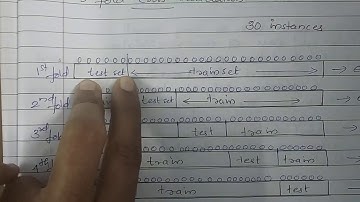 30 instances
1st fold test set ← train set →
2nd fold test set ← train →
3rd test train
4th train test train
train test